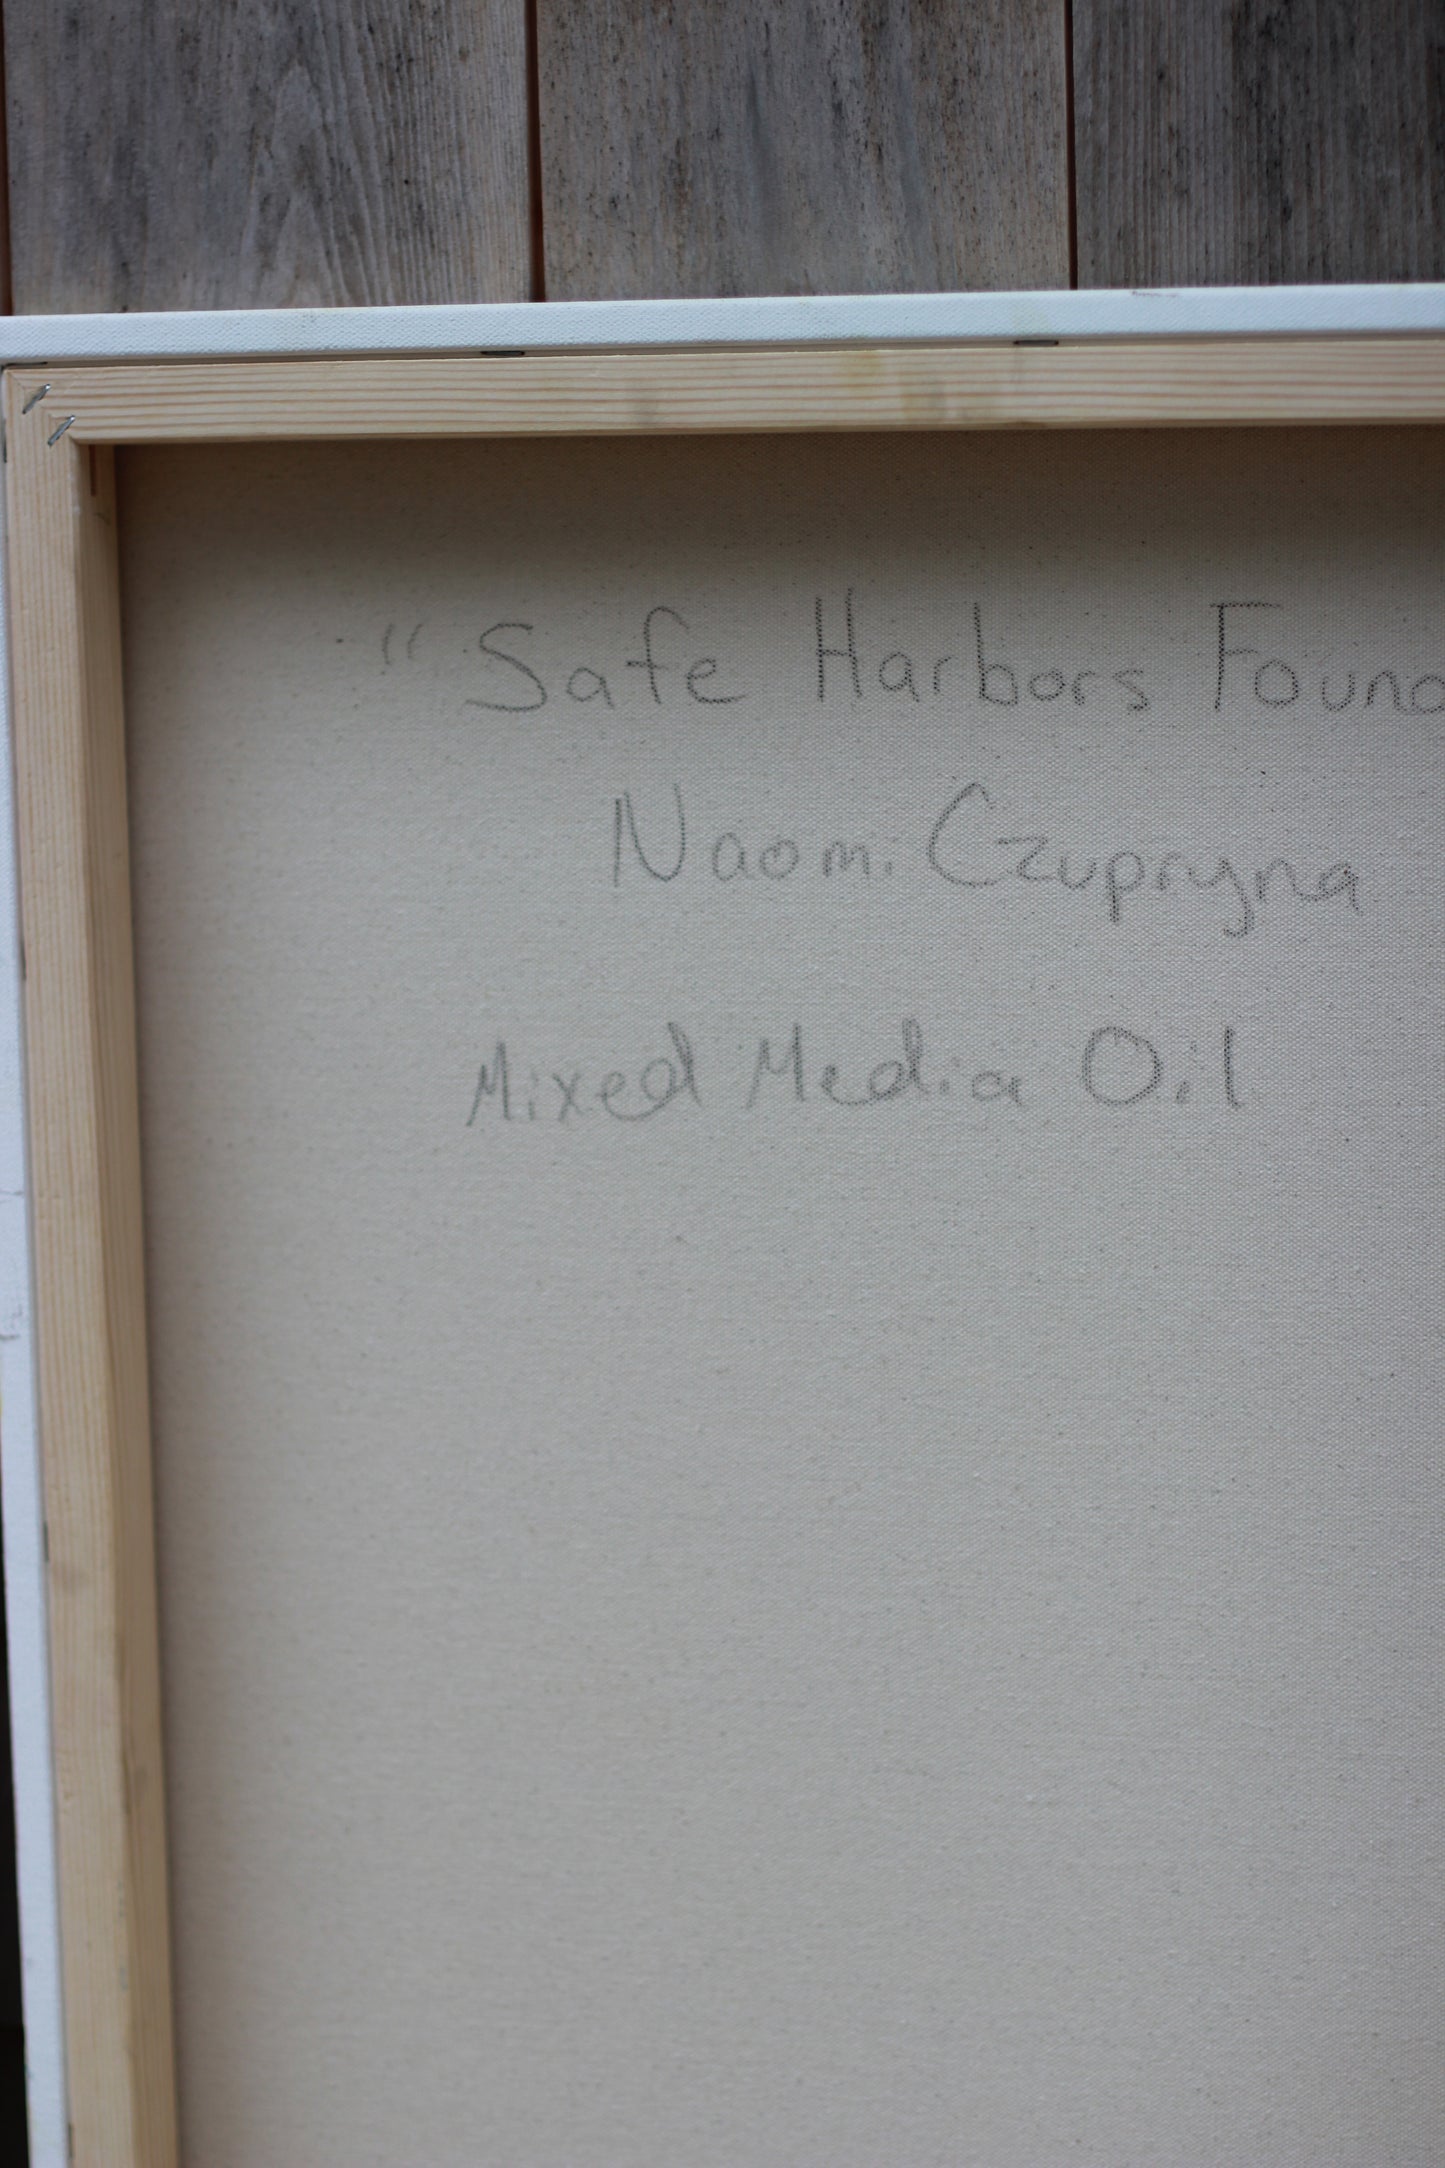 "Safe Harbors Found
Naomi Czupryna
Mixed Media Oil